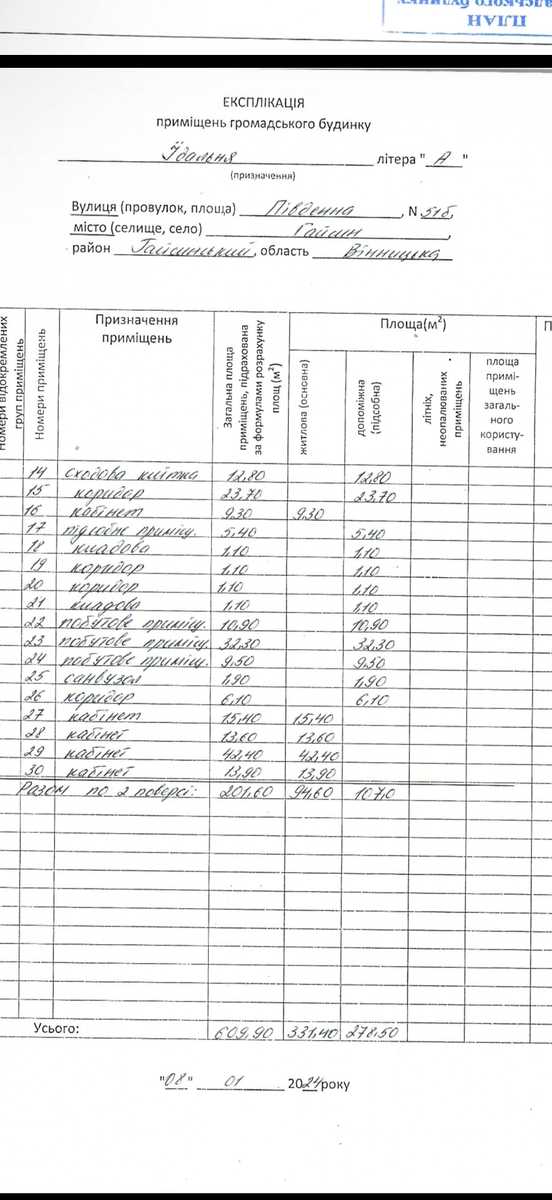 ПЛАН
ЕКСПЛІКАЦІЯ
приміщень громадського будинку
Їдальня літера "А"
(призначення)
Вулиця (провулок, площа) Південна, N 51б,
місто (селище, село) Гайсин,
район Гайсинський, область Вінницька
Номери відокремлених груп приміщень
Номери приміщень
Призначення приміщень
Загальна площа приміщень, підрахована за формулами розрахунку площ (м²)
Площа(м²)
житлова (основна)
допоміжна (підсобна)
літніх, неопалюваних приміщень
площа примі-
щень
загаль-
ного
користу-
вання
14 сходова клітка 12,80 12,80
15 коридор 23,70 23,70
16 кабінет 9,30 9,30
17 підсобне приміщ. 5,40 5,40
18 кладова 1,10 1,10
19 коридор 1,10 1,10
20 коридор 1,10 1,10
21 кладова 1,10 1,10
22 побутове приміщ. 10,90 10,90
23 побутове приміщ. 32,30 32,30
24 побутове приміщ. 9,50 9,50
25 санвузол 1,90 1,90
26 коридор 6,10 6,10
27 кабінет 15,40 15,40
28 кабінет 13,60 13,60
29 кабінет 42,40 42,40
30 кабінет 13,90 13,90
Разом по 2 поверсі: 201,60 94,60 107,0
Усього: 609,90 331,40 278,50
"08" 01 2024 року